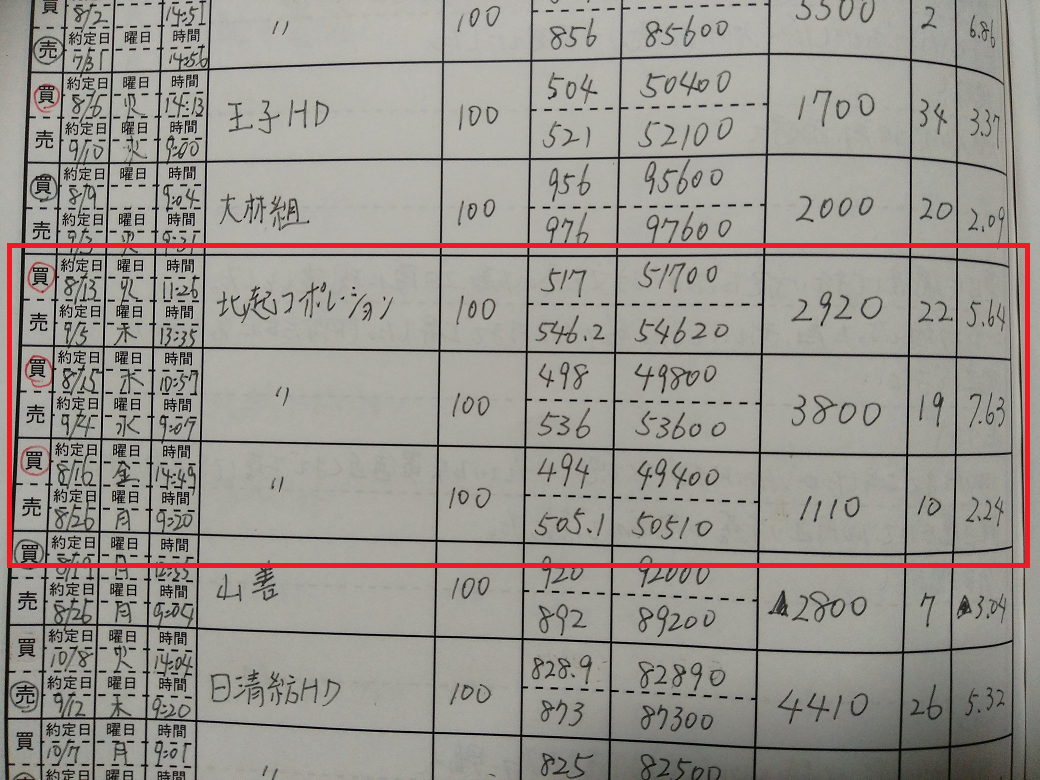 買 8/2 14:51 〃 100 5500 2 6.86
売 約定日 曜日 時間 856 85600
7/31 14:56
買 約定日 曜日 時間 504 50400
8/6 火 14:13 王子HD 100 1700 34 3.37
売 約定日 曜日 時間 521 52100
9/10 火 9:00
買 約定日 曜日 時間 956 95600
8/9 9:04 大林組 100 2000 20 2.09
売 約定日 曜日 時間 976 97600
9/3 火 9:31
買 約定日 曜日 時間 517 51700
8/13 火 11:26 北越コポレーション 100 2920 22 5.64
売 約定日 曜日 時間 546.2 54620
9/5 木 13:35
買 約定日 曜日 時間 498 49800
8/15 木 10:57 〃 100 3800 19 7.63
売 約定日 曜日 時間 536 53600
9/4 水 9:07
買 約定日 曜日 時間 494 49400
8/16 金 14:49 〃 100 1110 10 2.24
売 約定日 曜日 時間 505.1 50510
8/26 月 9:20
買 約定日 曜日 時間 920 92000
8/19 月 12:55 山善 100 ▲2800 7 ▲3.04
売 約定日 曜日 時間 892 89200
8/26 月 9:04
買 約定日 曜日 時間 828.9 82890
10/8 火 14:04 日清紡HD 100 4410 26 5.32
売 約定日 曜日 時間 873 87300
9/12 木 9:20
買 約定日 曜日 時間 825 82500
10/7 月 9:01 〃
約定日 曜日 時間